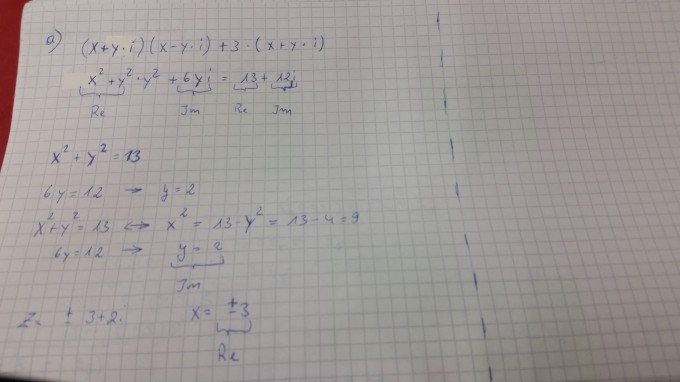 a) (x+y·i)(x-y·i)+3·(x+y·i)
x²+y²·y²+6yi = 13+12i
Re Im Re Im
x²+y²=13
6y=12 → y=2
x²+y²=13 ↔ x² = 13-y² = 13-4=9
6y=12 → y=2
Im
z= ± 3+2i x= ±3
Re